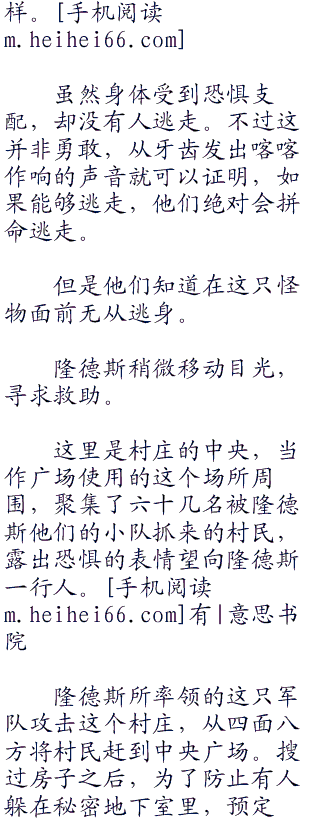 样。[手机阅读
m.heihei66.com]
虽然身体受到恐惧支
配，却没有人逃走。不过这
并非勇敢，从牙齿发出喀喀
作响的声音就可以证明，如
果能够逃走，他们绝对会拼
命逃走。
但是他们知道在这只怪
物面前无从逃身。
隆德斯稍微移动目光，
寻求救助。
这里是村庄的中央，当
作广场使用的这个场所周
围，聚集了六十几名被隆德
斯他们的小队抓来的村民，
露出恐惧的表情望向隆德斯
一行人。[手机阅读
m.heihei66.com]有|意思书
院
隆德斯所率领的这只军
队攻击这个村庄，从四面八
方将村民赶到中央广场。搜
过房子之后，为了防止有人
躲在秘密地下室里，预定